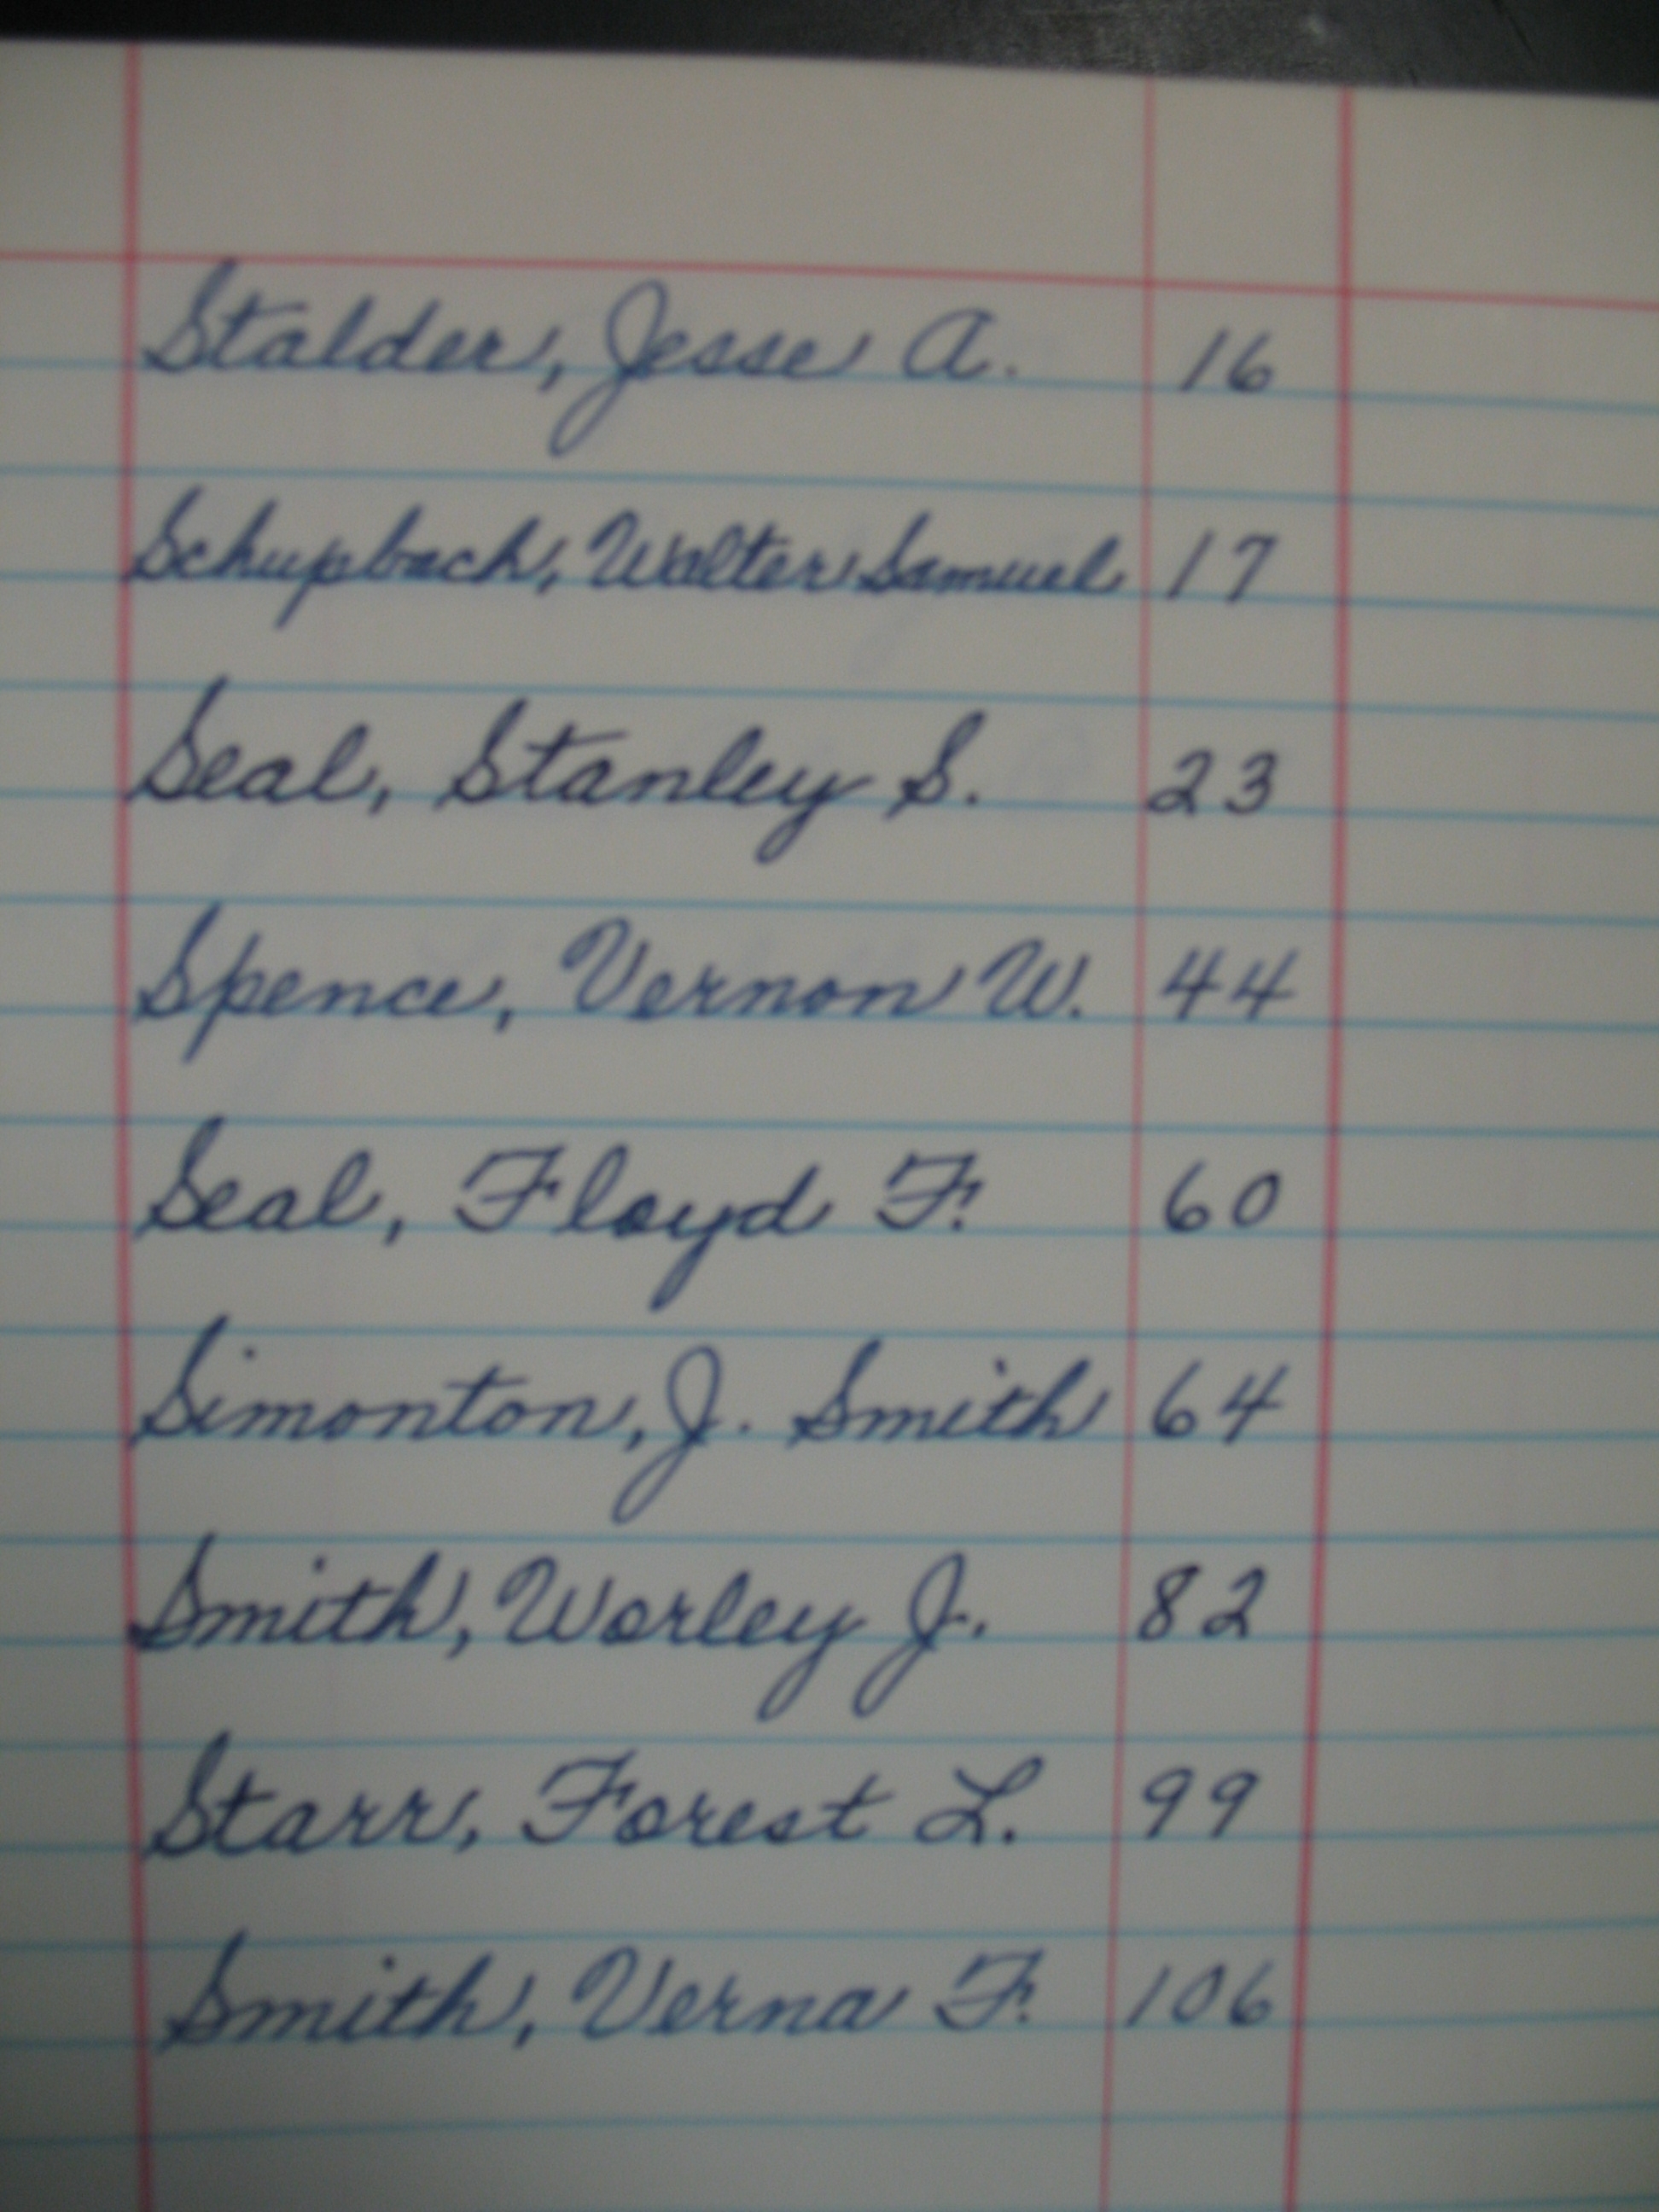 Stalder, Jesse A. 16
Schupbach, Walter Samuel 17
Seal, Stanley S. 23
Spence, Vernon W. 44
Seal, Floyd F. 60
Simonton, J. Smith 64
Smith, Worley J. 82
Starr, Forest L. 99
Smith, Verna F. 106